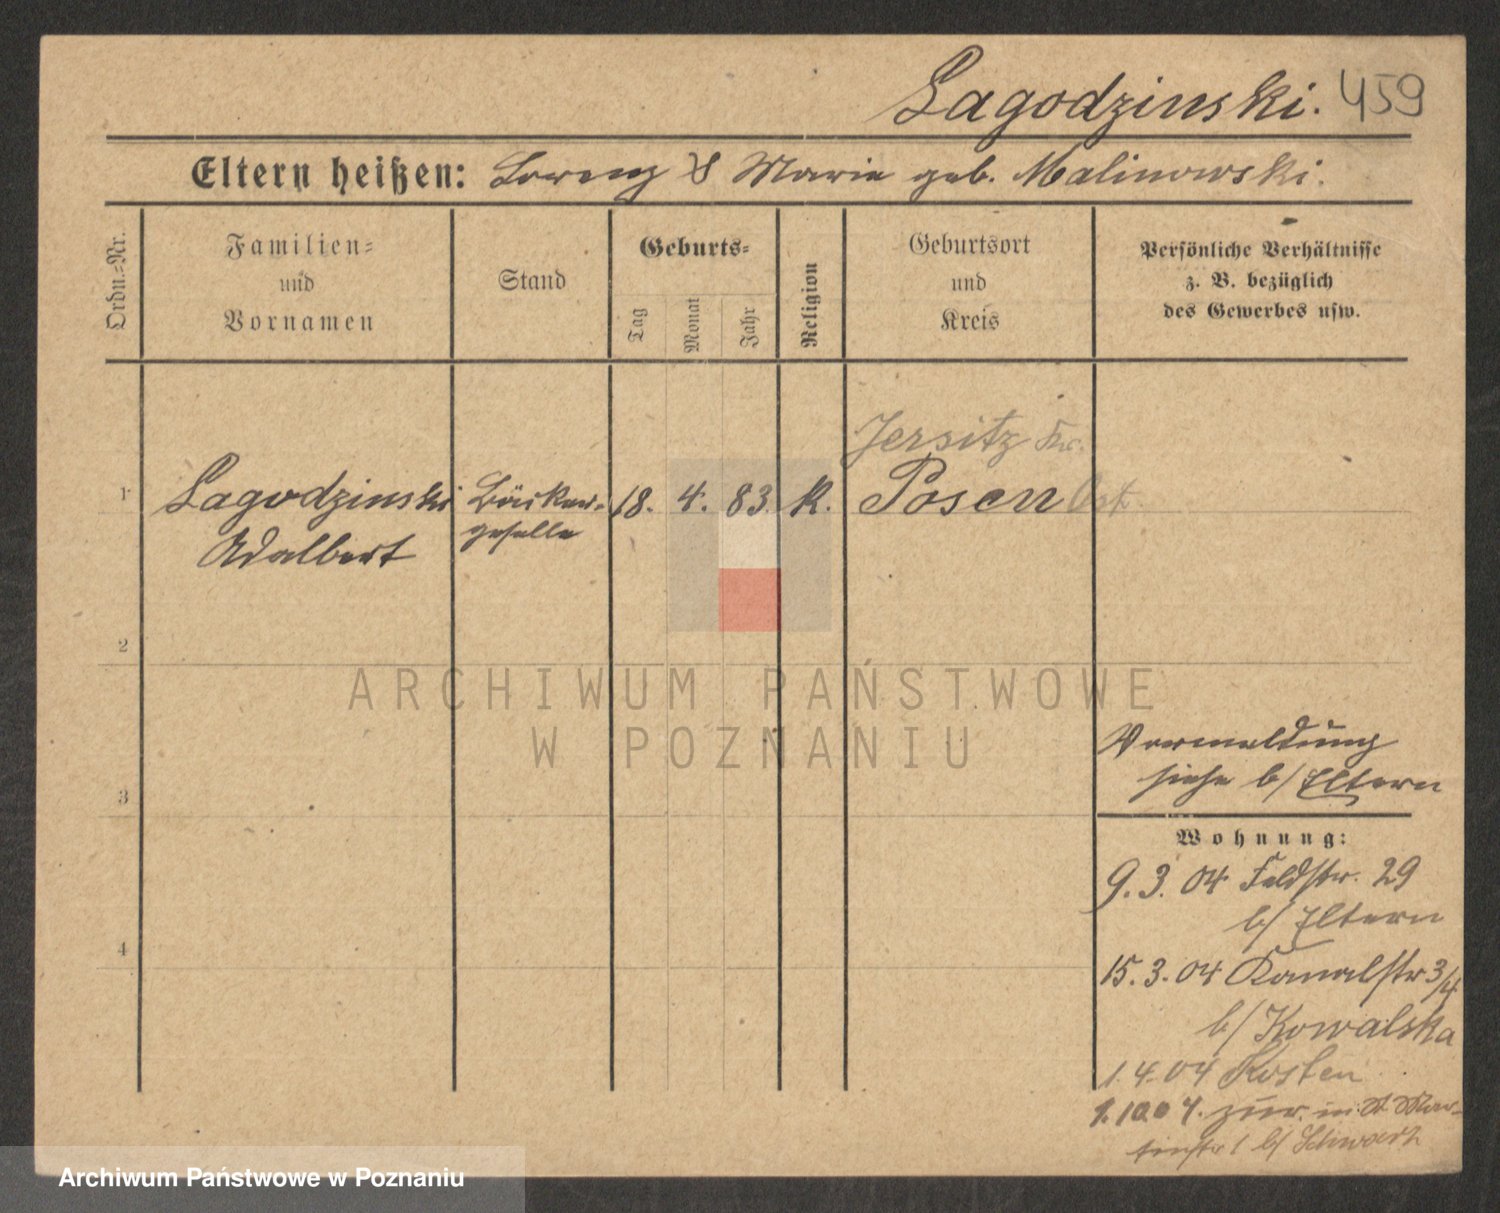 Lagodzinski. 459
Eltern heißen: Lorenz & Marie geb. Malinowski.
Ordn.-Nr.
Familien-
und
Vornamen
Stand
Geburts-
Tag
Monat
Jahr
Religion
Geburtsort
und
Kreis
Persönliche Verhältnisse
z. B. bezüglich
des Gewerbes usw.
Jersitz Kr.
1 Lagodzinski Bäcker- 18. 4. 83. K. Posen Ost.
Adalbert geselle
2
ARCHIWUM PAŃSTWOWE
W POZNANIU
Vormeldung
siehe b/ Eltern
3
Wohnung:
9. 3. 04 Feldstr. 29
b/ Eltern
4
15. 3. 04 Kanalstr 3/4
b/ Kowalska
1. 4. 04 Kosten
1. 10 04. zur. in St Mar-
tinstr 1 b/ Schwartz
Archiwum Państwowe w Poznaniu